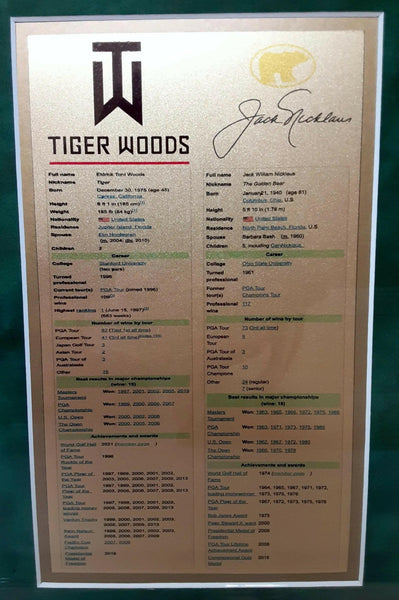 TW
TIGER WOODS
Full name Eldrick Tont Woods
Nickname Tiger
Born December 30, 1975 (age 45)
Cypress, California
Height 6 ft 1 in (185 cm)
Weight 185 lb (84 kg)
Nationality United States
Residence Jupiter Island, Florida
Spouse Elin Nordegren
(m. 2004; div. 2010)
Children 2
Career
College Stanford University
(two years)
Turned 1996
professional
Current tour(s) PGA Tour (joined 1996)
Professional 109
wins
Highest ranking 1 (June 15, 1997)
(683 weeks)
Number of wins by tour
PGA Tour 82 (Tied 1st all time)
European Tour 41 (3rd all time)
Japan Golf Tour 3
Asian Tour 2
PGA Tour of 3
Australasia
Other
Best results in major championships
(wins: 15)
Masters Won: 1997, 2001, 2002, 2005, 2019
Tournament
PGA Won: 1999, 2000, 2006, 2007
Championship
U.S. Open Won: 2000, 2002, 2008
The Open Won: 2000, 2005, 2006
Championship
Achievements and awards
World Golf Hall 2021
of Fame
PGA Tour 1996
Rookie of the
Year
PGA Player of
the Year
PGA Tour
Player of the
Year
PGA Tour
leading money
winner
Vardon Trophy
Byron Nelson
Award
FedEx Cup 2007, 2009
Champion
Presidential 2019
Medal of
Freedom
Jack Nicklaus
Full name Jack William Nicklaus
Nickname The Golden Bear
Born January 21, 1940 (age 81)
Columbus, Ohio, U.S
Height 5 ft 10 in (1.78 m)
Nationality United States
Residence North Palm Beach, Florida, U.S
Spouse Barbara Bash (m. 1960)
Children 5, including Gary Nicklaus
Career
College Ohio State University
Turned 1961
professional
Former PGA Tour
tour(s) Champions Tour
Professional 117
wins
Number of wins by tour
PGA Tour 73 (3rd all time)
European
Tour
PGA Tour of 3
Australasia
PGA Tour 10
Champions
Other 24 (regular)
7 (senior)
Best results in major championships
(wins: 18)
Masters Won: 1963, 1965, 1966, 1972, 1975, 1986
Tournament
PGA Won: 1963, 1971, 1973, 1975, 1980
Championship
U.S. Open Won: 1962, 1967, 1972, 1980
The Open Won: 1966, 1970, 1978
Championship
Achievements and awards
World Golf Hall of 1974
Fame
PGA Tour 1964, 1965, 1967, 1971, 1972,
leading money winner 1973, 1975, 1976
PGA Player of the 1967, 1972, 1973, 1975, 1976
Year
Bob Jones Award 1975
2000
Presidential Medal of
Freedom
PGA Tour Lifetime 2008
Achievement Award
Congressional Gold
Medal